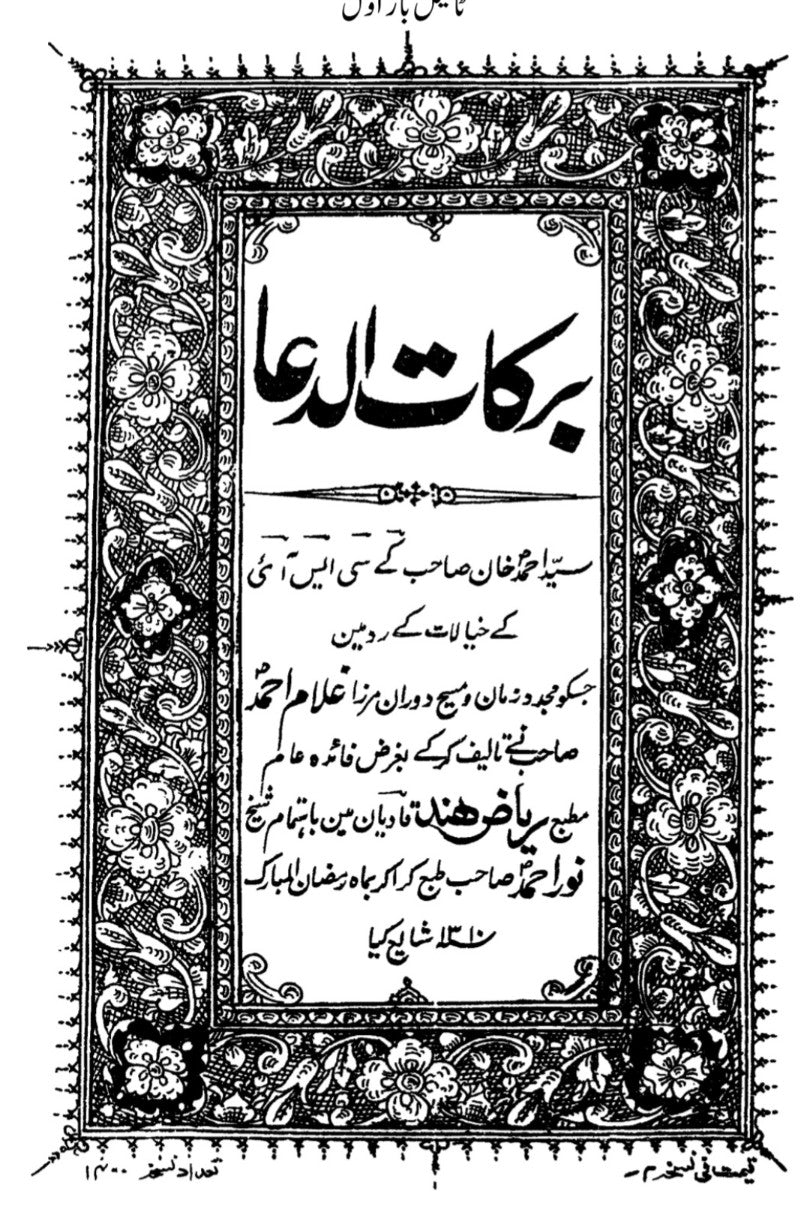 ٹائیٹل بار اول
برکات الدعا
سیّد احمد خان صاحب کے سی ایس آئی
کے خیالات کے رد مین
جسکو مجدد زمان و مسیح دوران مرزا غلام احمد
صاحب نے تالیف کر کے بغرض فائدہ عام
مطبع ریاض ھند قادیان مین باہتمام شیخ
نور احمد صاحب طبع کرا کر بماہ رمضان المبارک
۱۳۱۰ شایع کیا
قیمت فی نسخہ
تعداد نسخہ